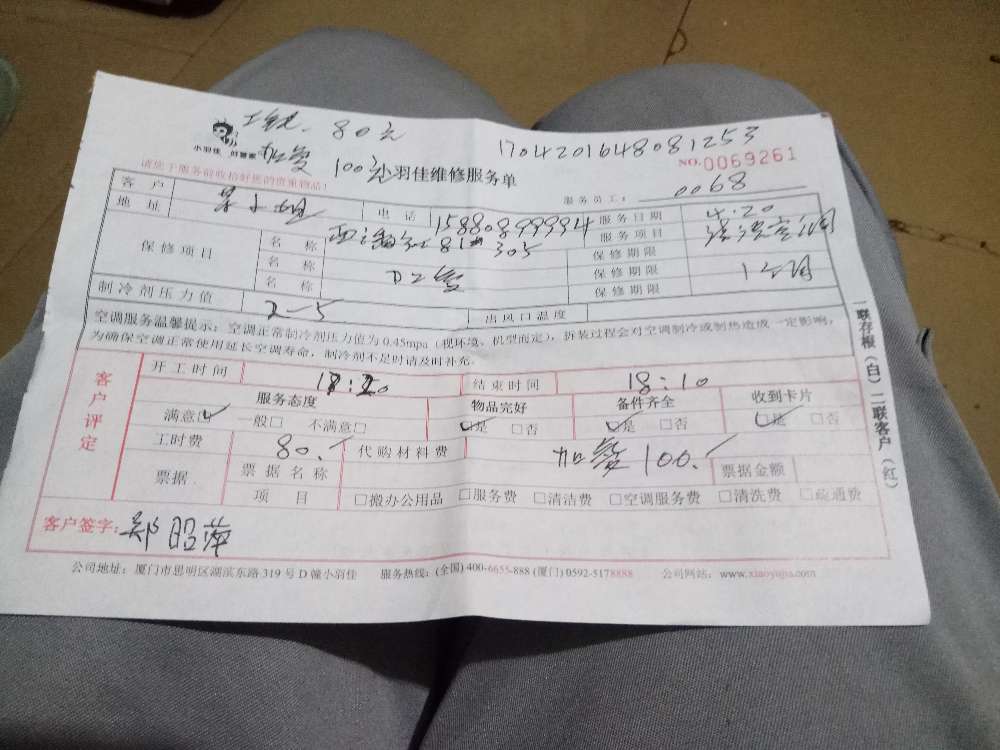 80元
1704201648081253
小羽佳 好管家
加 100元
小羽佳维修服务单
NO.0069261
请您于服务前收拾好您的贵重物品!
服务员工: 0068
客 户 小姐 电 话 15880899994 服务日期 4.20
地 址 81# 305 服务项目 空调
保修项目 名 称 保修期限
名 称 保修期限 1个月
名 称 保修期限
制冷剂压力值 2-5 出风口温度
空调服务温馨提示:空调正常制冷剂压力值为 0.45mpa(视环境、机型而定),拆装过程会对空调制冷或制热造成一定影响,
为确保空调正常使用延长空调寿命,制冷剂不足时请及时补充.
客户评定
开工时间 结束时间 18:10
服务态度 物品完好 备件齐全 收到卡片
满意☑ 一般□ 不满意□ ☑是 □否 ☑是 □否 ☑是 □否
工时费 80. 代购材料费 加 100.
票据 票据名称 票据金额
项 目 □搬办公用品 □服务费 □清洁费 □空调服务费 □清洗费 □疏通费
客户签字: 郑昭萍
公司地址:厦门市思明区湖滨东路 319 号 D 幢小羽佳 服务热线:(全国) 400-6655-888 (厦门) 0592-5178888 公司网站:www.xiaoyujia.com
一联存根(白)二联客户(红)